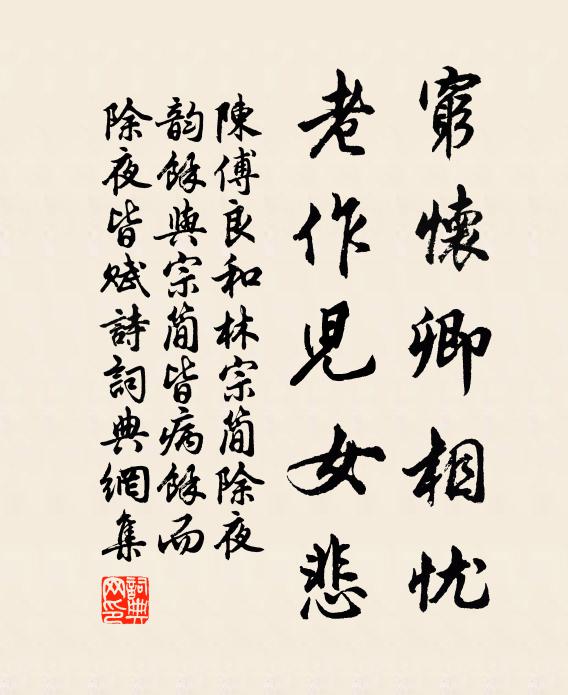 窮懷卿相忧
老作児女悲
陳傅良和林宗簡除夜
韵餘與宗簡皆病餘而
除夜皆賦詩詞典網集
詞典
网印